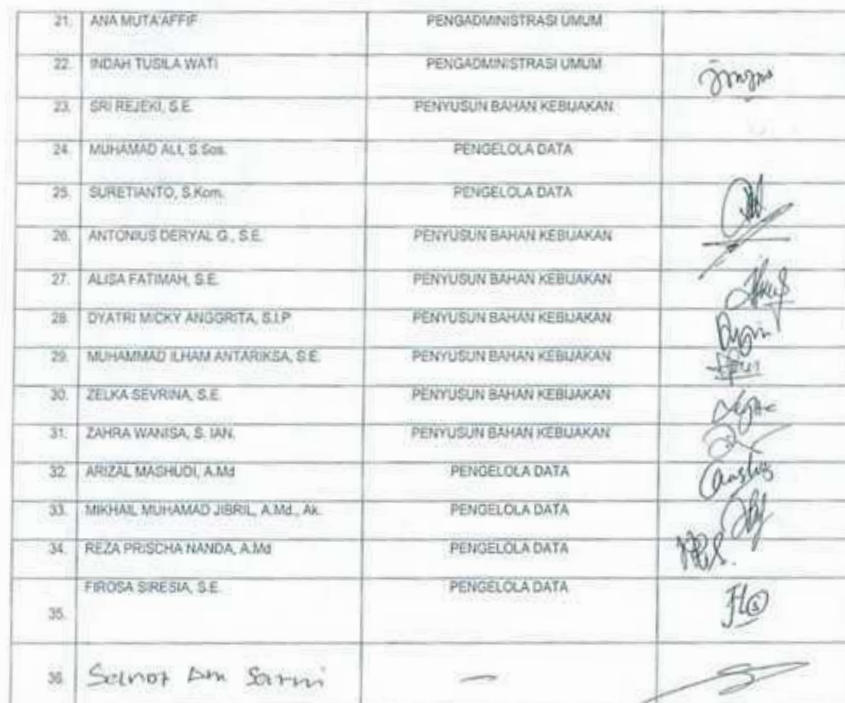 21. ANA MUTA'AFFIF PENGADMINISTRASI UMUM
22. INDAH TUSILA WATI PENGADMINISTRASI UMUM
23. SRI REJEKI, S.E. PENYUSUN BAHAN KEBIJAKAN
24. MUHAMAD ALI, S.Sos. PENGELOLA DATA
25. SURETIANTO, S.Kom. PENGELOLA DATA
26. ANTONIUS DERYAL G., S.E. PENYUSUN BAHAN KEBIJAKAN
27. ALISA FATIMAH, S.E. PENYUSUN BAHAN KEBIJAKAN
28. DYATRI MICKY ANGGRITA, S.I.P PENYUSUN BAHAN KEBIJAKAN
29. MUHAMMAD ILHAM ANTARIKSA, S.E. PENYUSUN BAHAN KEBIJAKAN
30. ZELKA SEVRINA, S.E. PENYUSUN BAHAN KEBIJAKAN
31. ZAHRA WANISA, S. IAN. PENYUSUN BAHAN KEBIJAKAN
32. ARIZAL MASHUDI, A.Md PENGELOLA DATA
33. MIKHAIL MUHAMAD JIBRIL, A.Md., Ak. PENGELOLA DATA
34. REZA PRISCHA NANDA, A.Md PENGELOLA DATA
35. FIROSA SIRESIA, S.E. PENGELOLA DATA
36. —